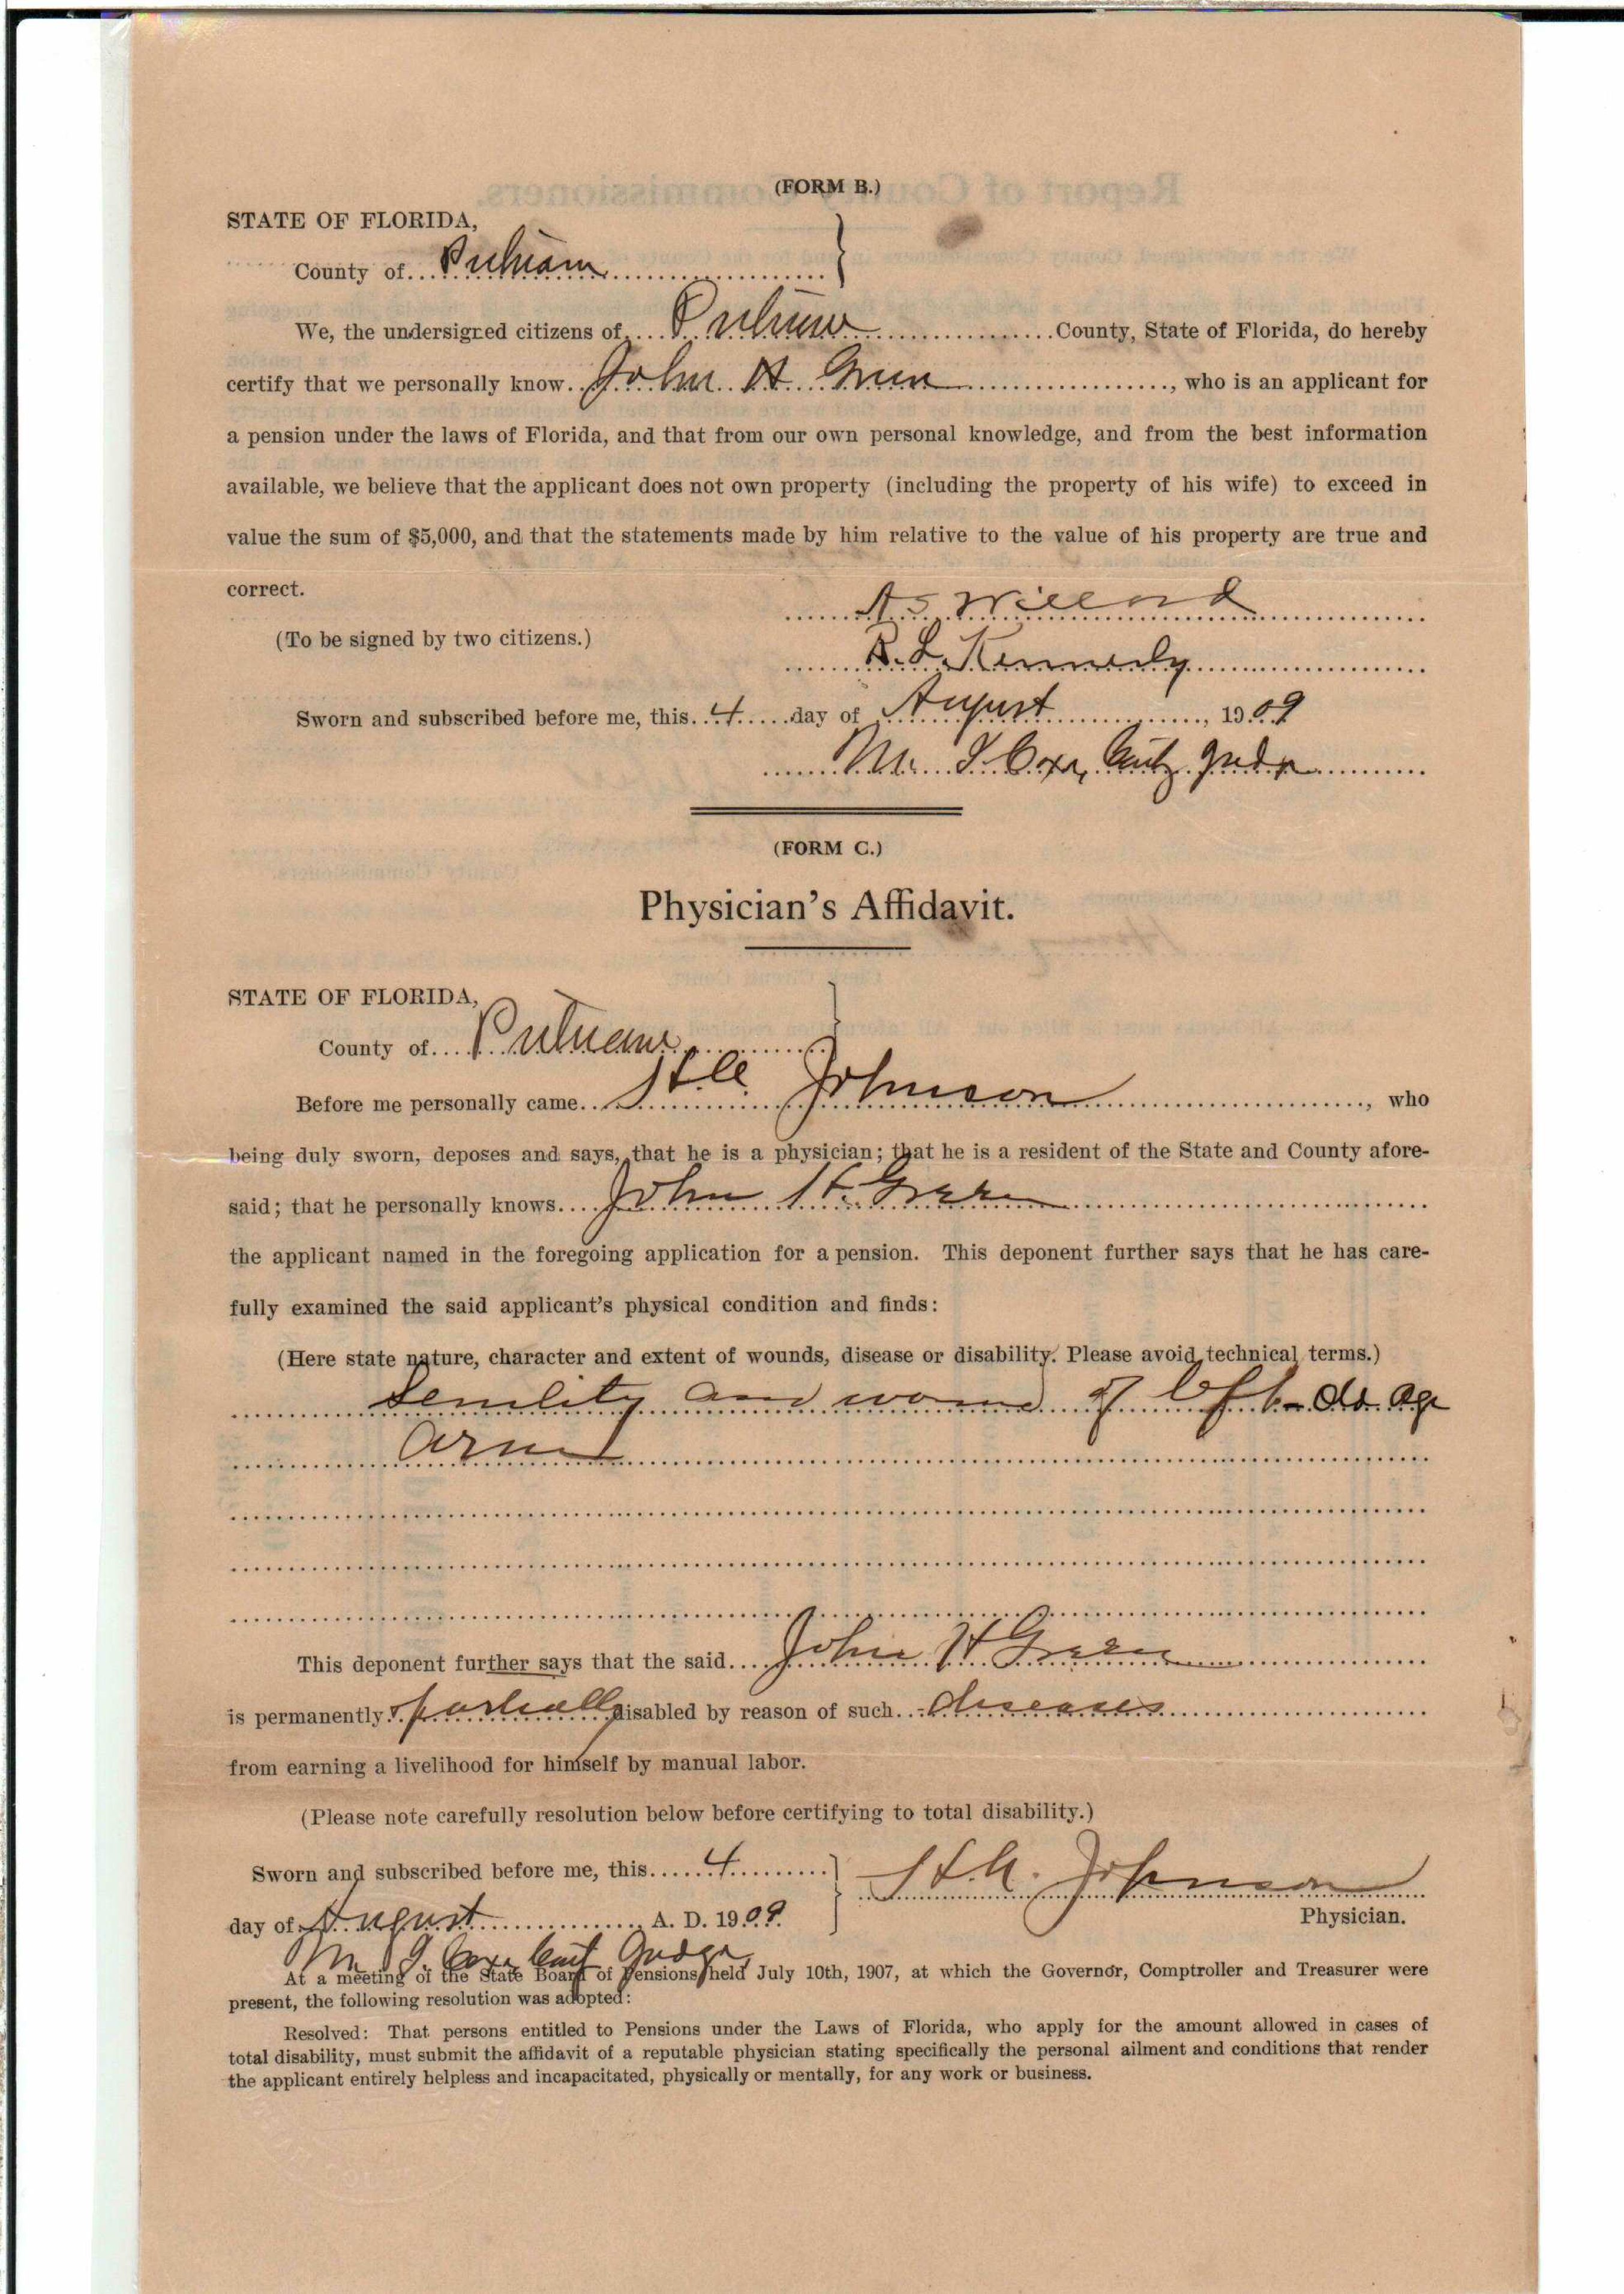 (FORM B.)
STATE OF FLORIDA,
County of Putnam
We, the undersigned citizens of Putnam County, State of Florida, do hereby
certify that we personally know John H Green, who is an applicant for
a pension under the laws of Florida, and that from our own personal knowledge, and from the best information
available, we believe that the applicant does not own property (including the property of his wife) to exceed in
value the sum of $5,000, and that the statements made by him relative to the value of his property are true and
correct.
A S Willard
(To be signed by two citizens.)
R. L. Kennerly
Sworn and subscribed before me, this 4 day of August, 1909
M. I. Cox, Judge
(FORM C.)
Physician's Affidavit.
STATE OF FLORIDA,
County of Putnam
Before me personally came Johnson, who
being duly sworn, deposes and says, that he is a physician; that he is a resident of the State and County afore-
said; that he personally knows John H. Green
the applicant named in the foregoing application for a pension. This deponent further says that he has care-
fully examined the said applicant's physical condition and finds:
(Here state nature, character and extent of wounds, disease or disability. Please avoid technical terms.)
Senility and wound of left age
arm
This deponent further says that the said John H Green
is permanently partially disabled by reason of such diseases
from earning a livelihood for himself by manual labor.
(Please note carefully resolution below before certifying to total disability.)
Sworn and subscribed before me, this 4
Johnson
day of August A. D. 1909.
Physician.
M I. Cox Judge
At a meeting of the State Board of Pensions held July 10th, 1907, at which the Governor, Comptroller and Treasurer were
present, the following resolution was adopted:
Resolved: That persons entitled to Pensions under the Laws of Florida, who apply for the amount allowed in cases of
total disability, must submit the affidavit of a reputable physician stating specifically the personal ailment and conditions that render
the applicant entirely helpless and incapacitated, physically or mentally, for any work or business.